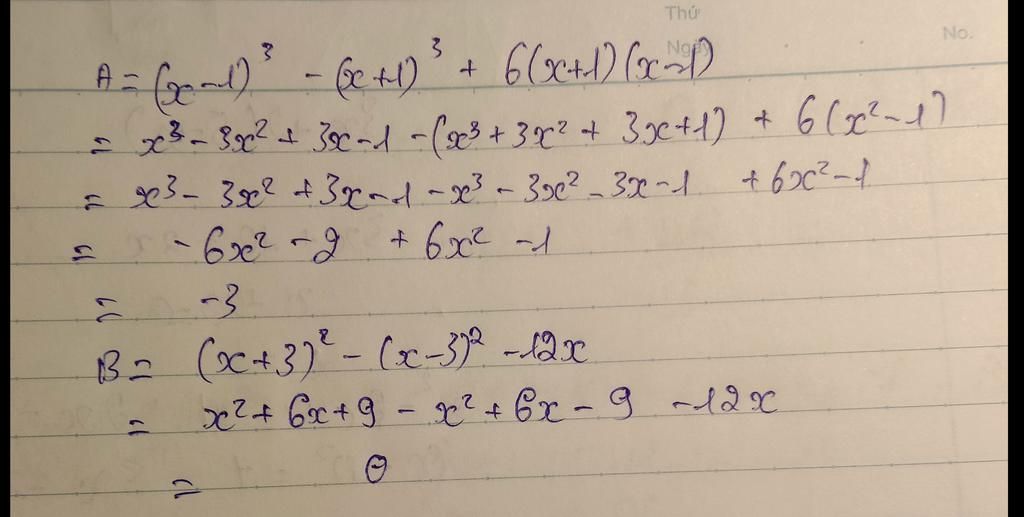 Thứ
Ngày
No.
A = (x-1)³ - (x+1)³ + 6(x+1)(x-1)
= x³ - 3x² + 3x - 1 - (x³ + 3x² + 3x + 1) + 6(x² - 1)
= x³ - 3x² + 3x - 1 - x³ - 3x² - 3x - 1 + 6x² - 1
= - 6x² - 2 + 6x² - 1
= -3
B = (x+3)² - (x-3)² - 12x
= x² + 6x + 9 - x² + 6x - 9 - 12x
= 0